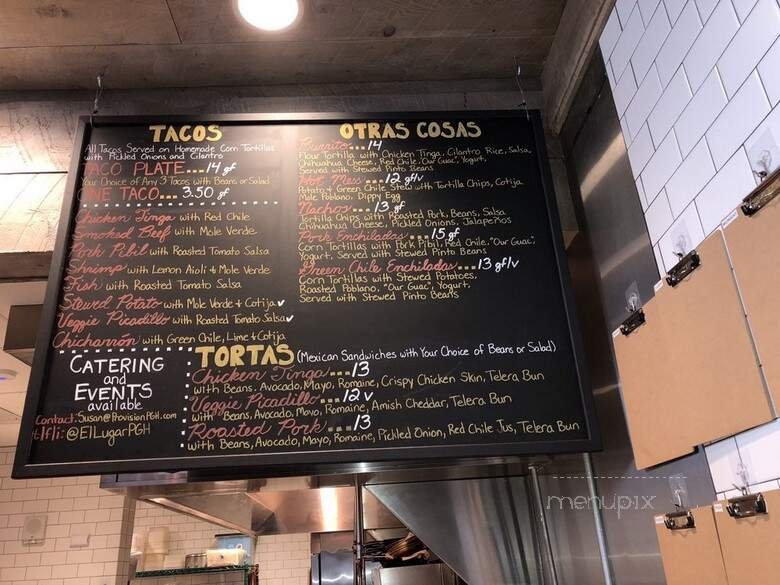 TACOS
All Tacos Served on Homemade Corn Tortillas
with Pickled Onions and Cilantro
TACO PLATE...14 gf
Your Choice of Any 3 Tacos with Beans or Salad
ONE TACO... 3.50 gf
Chicken Tinga with Red Chile
Smoked Beef with Mole Verde
Pork Pibil with Roasted Tomato Salsa
Shrimp with Lemon Aioli + Mole Verde
Fish with Roasted Tomato Salsa
Stewed Potato with Mole Verde + Cotija v
Veggie Picadillo with Roasted Tomato Salsa v
Chicharrón with Green Chile, Lime + Cotija
CATERING
and
EVENTS
available
Contact: Susan@ProvisionPGH.com
@ElLugarPGH
OTRAS COSAS
Burrito...14
Flour Tortilla with Chicken Tinga, Cilantro Rice, Salsa,
Chihuahua Cheese, Red Chile, "Our Guac", Yogurt,
Served with Stewed Pinto Beans
Hot Mess...12 gf/v
Potato + Green Chile Stew with Tortilla Chips, Cotija
Mole Poblano, Dippy Egg
Nachos... 13 gf
Tortilla Chips with Roasted Pork, Beans, Salsa
Chihuahua Cheese, Pickled Onions, Jalapeños
Pork Enchiladas... 15 gf
Corn Tortillas with Pork Pibil, Red Chile, "Our Guac",
Yogurt, Served with Stewed Pinto Beans
Green Chile Enchiladas...13 gf/v
Corn Tortillas with Stewed Potatoes,
Roasted Poblano, "Our Guac", Yogurt,
Served with Stewed Pinto Beans
TORTAS (Mexican Sandwiches with Your Choice of Beans or Salad)
Chicken Tinga...13
with Beans, Avocado, Mayo, Romaine, Crispy Chicken Skin, Telera Bun
Veggie Picadillo...12 v
with Beans, Avocado, Mayo, Romaine, Amish Cheddar, Telera Bun
Roasted Pork...13
with Beans, Avocado, Mayo, Romaine, Pickled Onion, Red Chile Jus, Telera Bun
menupix